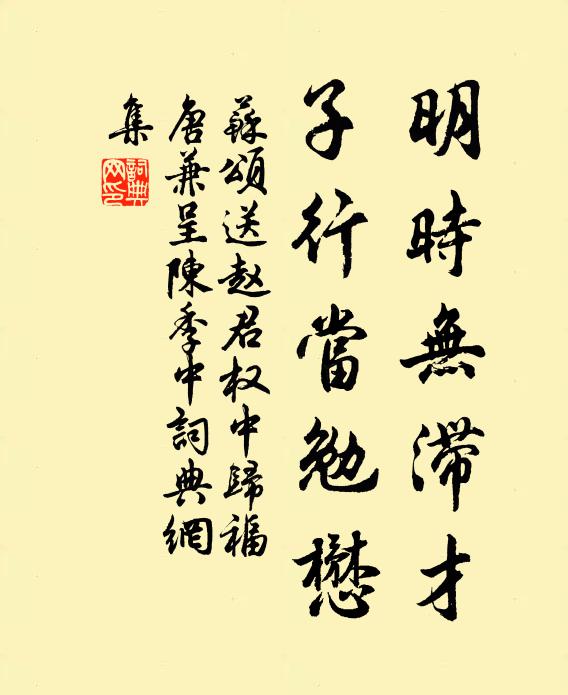 明時無滯才
子行當勉懋
蘇頌送赵君权中歸福
唐兼呈陳季中詞典網
集
詞典网印